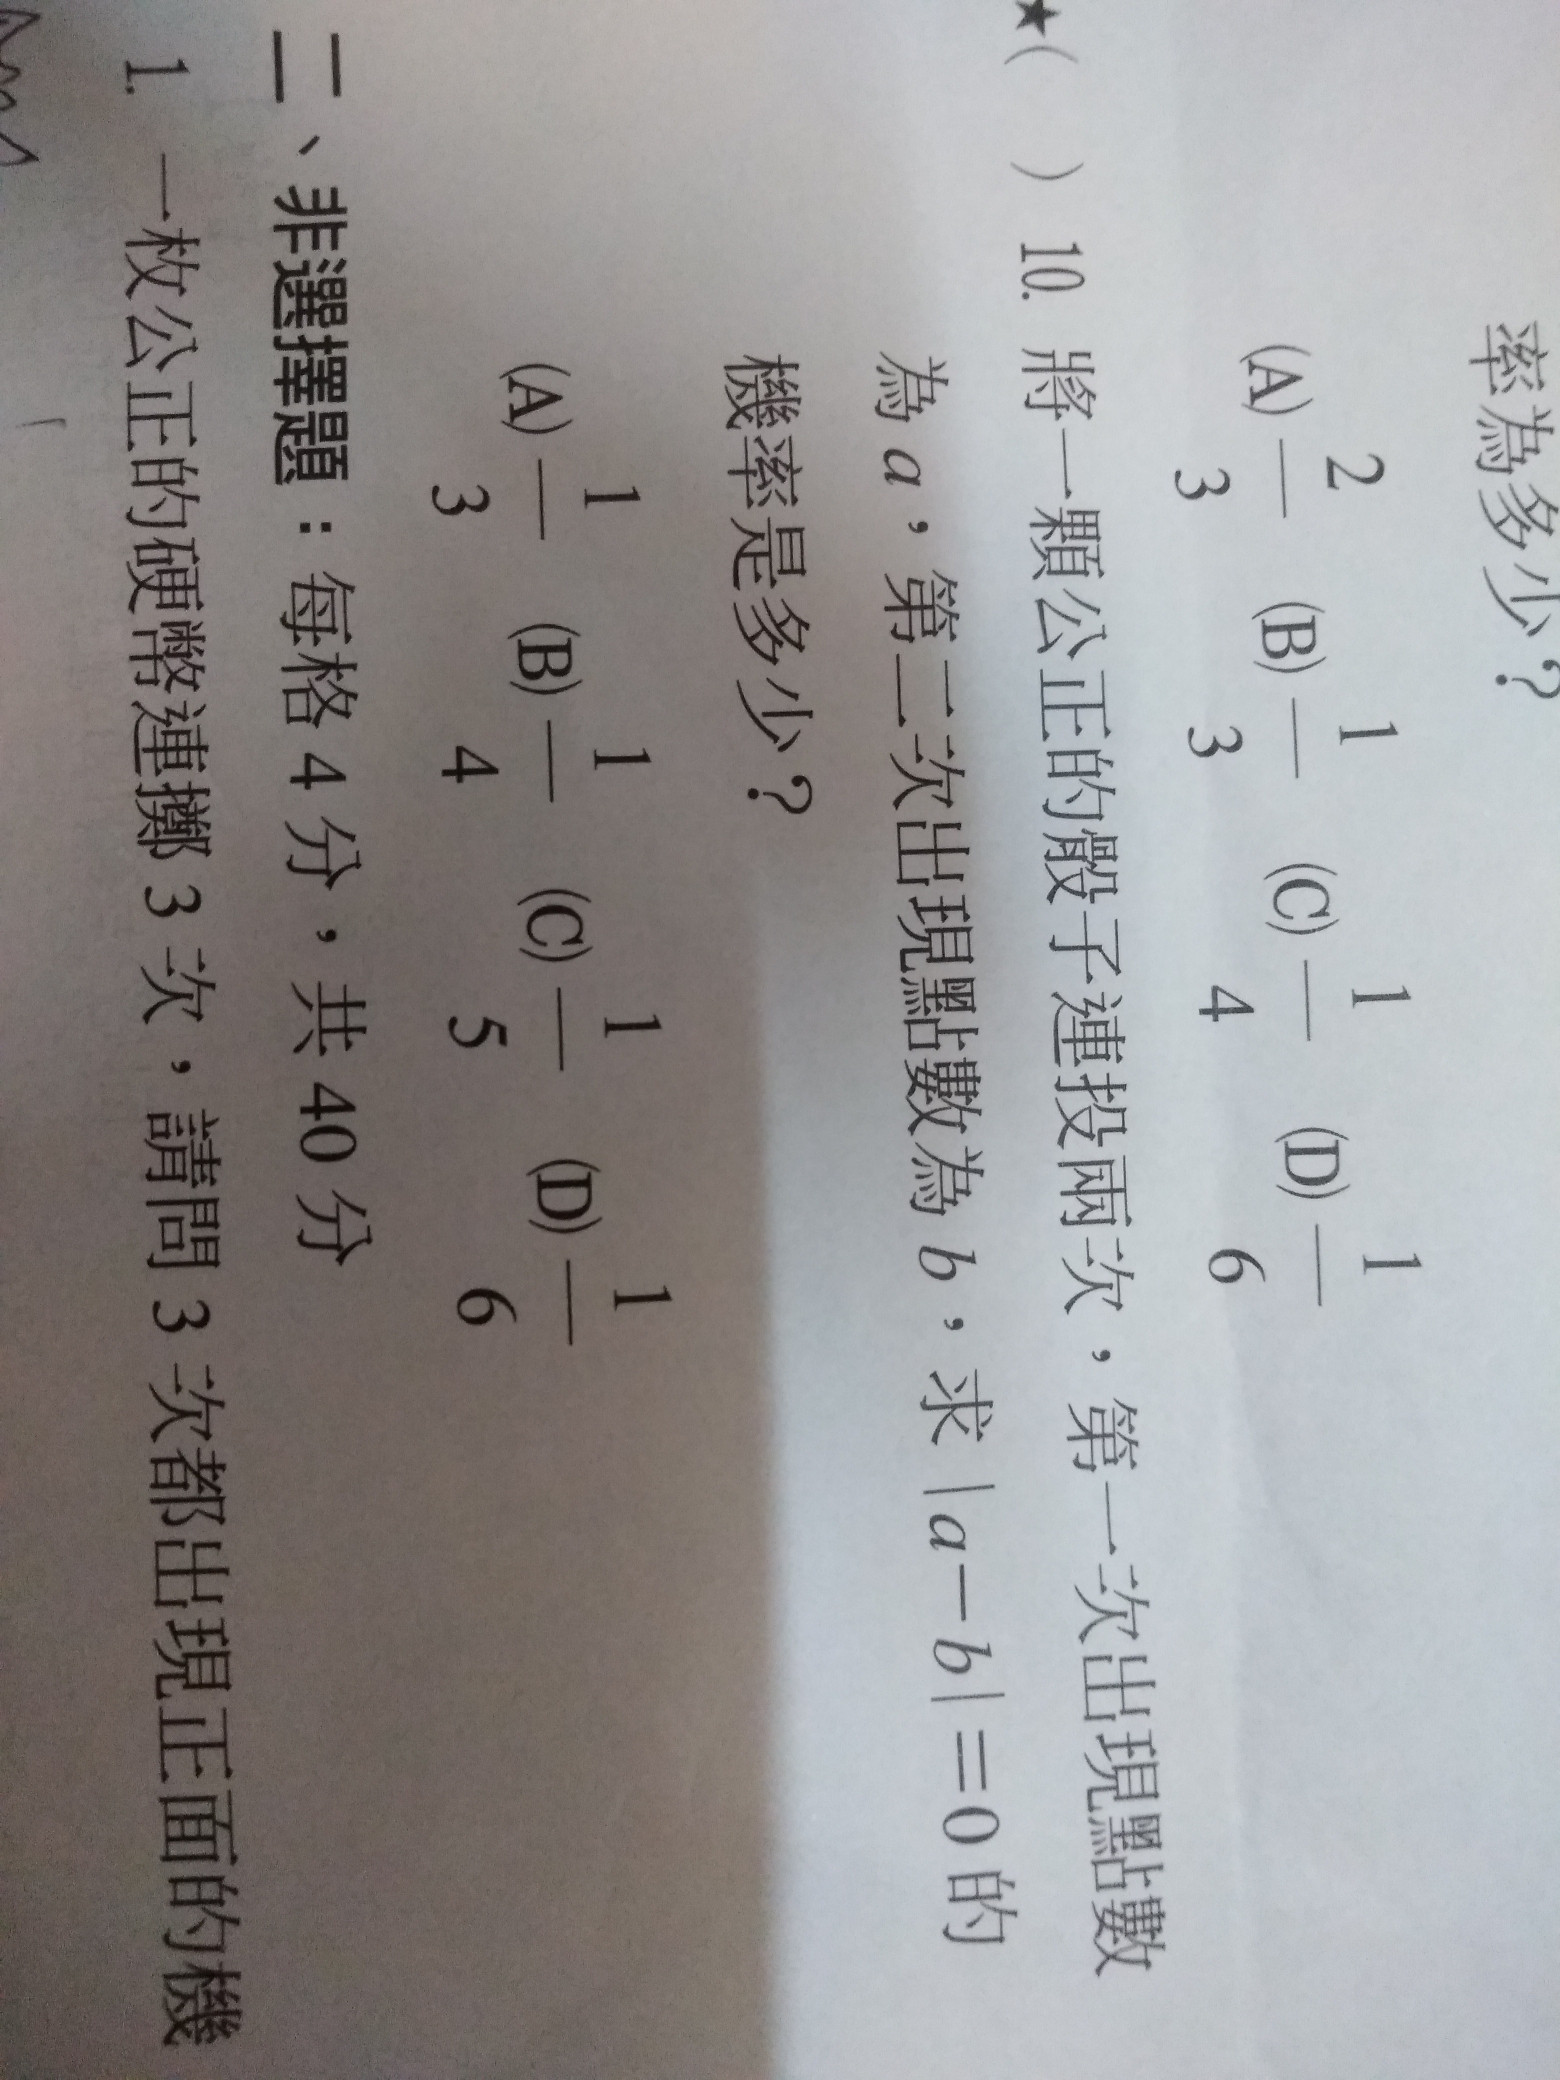 率為多少?
(A) 2/3 (B) 1/3 (C) 1/4 (D) 1/6
★( ) 10. 將一顆公正的骰子連投兩次，第一次出現點數
為 a，第二次出現點數為 b，求｜a－b｜＝0 的
機率是多少?
(A) 1/3 (B) 1/4 (C) 1/5 (D) 1/6
二、非選擇題：每格 4 分，共 40 分
1. 一枚公正的硬幣連擲 3 次，請問 3 次都出現正面的機